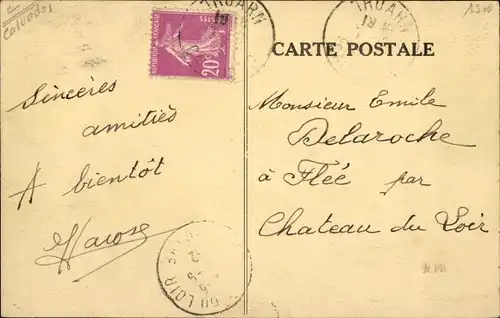 Calvados
THUARN
RÉPUBLIQUE FRANÇAISE
POSTES
20
THUARN
CARTE POSTALE
Sincères
amitiés
A bientôt
Monsieur Emile
Delaroche
à Flée par
Chateau du Loir
DU LOIR